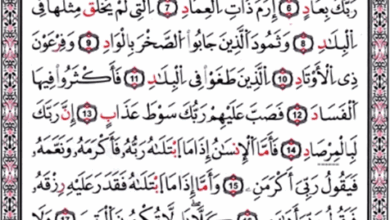 رَبُّكَ بِعَادٍ ٦ إِرَمَ ذَاتِ الْعِمَادِ ٧ الَّتِي لَمْ يُخْلَقْ مِثْلُهَا فِي
الْبِلَٰدِ ٨ وَثَمُودَ الَّذِينَ جَابُوا الصَّخْرَ بِالْوَادِ ٩ وَفِرْعَوْنَ
ذِي الْأَوْتَادِ ١٠ الَّذِينَ طَغَوْا فِي الْبِلَٰدِ ١١ فَأَكْثَرُوا فِيهَا
الْفَسَادَ ١٢ فَصَبَّ عَلَيْهِمْ رَبُّكَ سَوْطَ عَذَابٍ ١٣ إِنَّ رَبَّكَ
لَبِالْمِرْصَادِ ١٤ فَأَمَّا الْإِنسَٰنُ إِذَا مَا ابْتَلَىٰهُ رَبُّهُ فَأَكْرَمَهُ وَنَعَّمَهُ
فَيَقُولُ رَبِّي أَكْرَمَنِ ١٥ وَأَمَّا إِذَا مَا ابْتَلَىٰهُ فَقَدَرَ عَلَيْهِ رِزْقَهُ